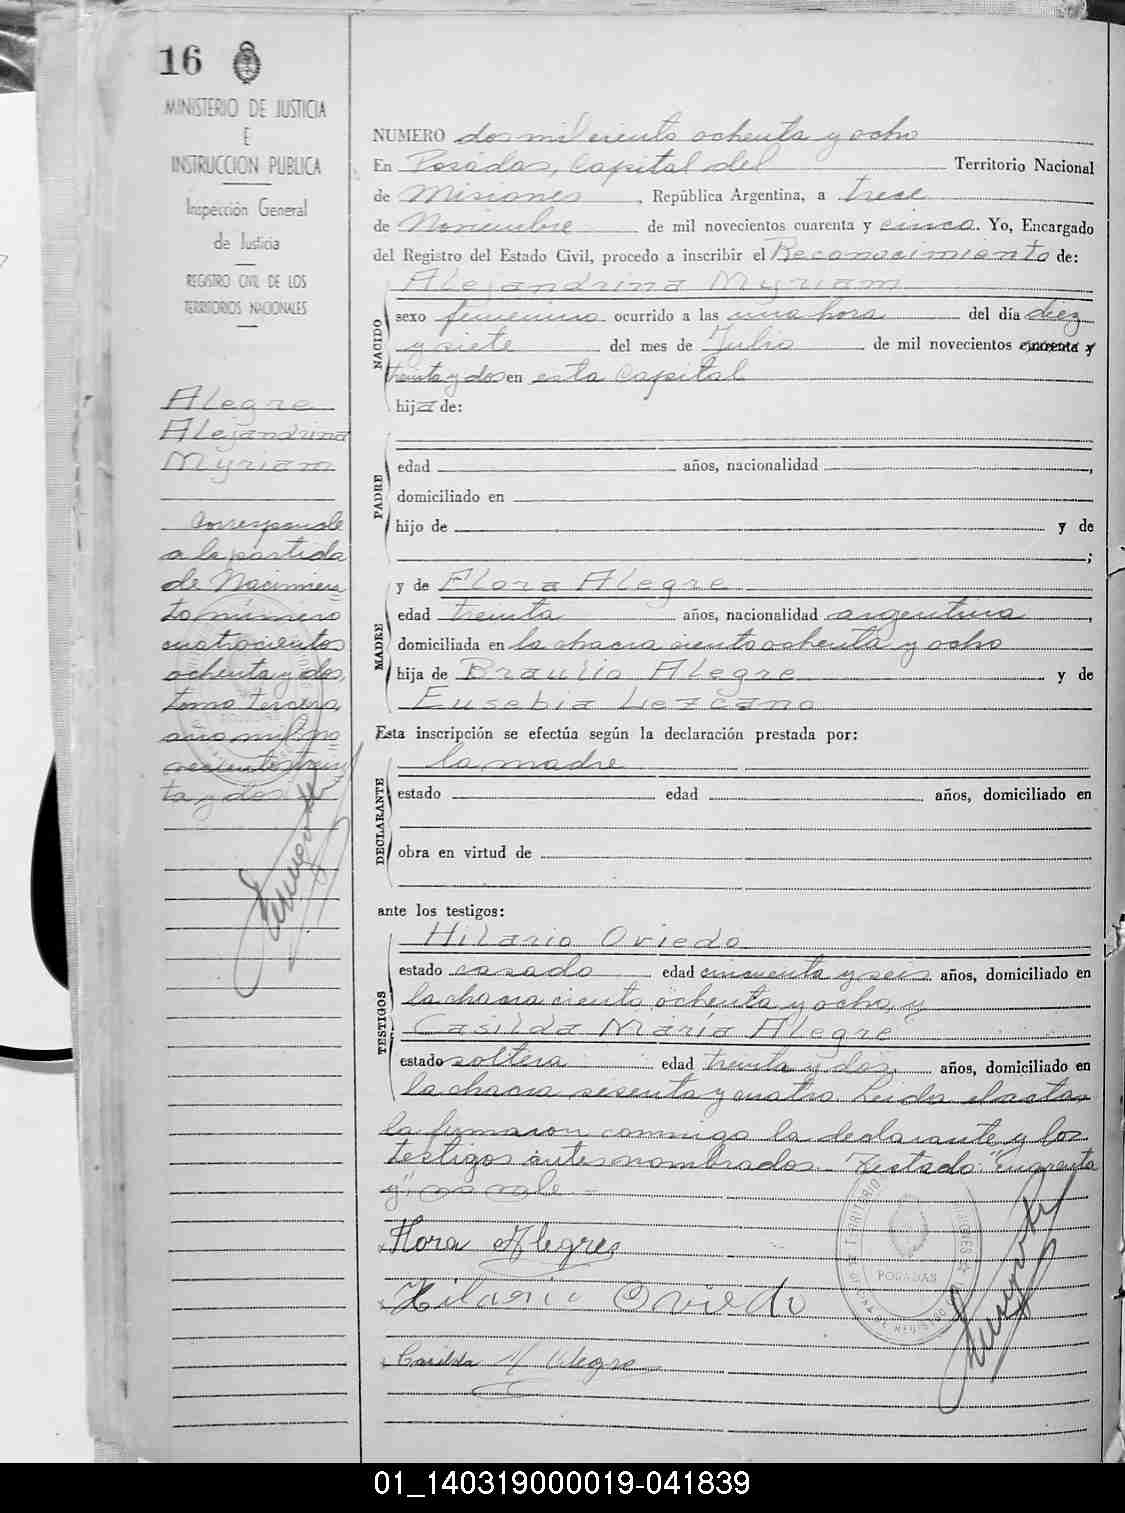 16
MINISTERIO DE JUSTICIA
E
INSTRUCCION PUBLICA
Inspección General
de Justicia
REGISTRO CIVIL DE LOS
TERRITORIOS NACIONALES
Alegre
Alejandrina
Myriam
Corresponde
a la partida
de Nacimien
to número
cuatrocientos
ochenta y dos,
tomo tercero,
año mil no
vecientos trein
ta y dos
NUMERO dos mil ciento ochenta y ocho
En Posadas, Capital del Territorio Nacional
de Misiones, República Argentina, a trece
de Noviembre de mil novecientos cuarenta y cinco. Yo, Encargado
del Registro del Estado Civil, procedo a inscribir el Reconocimiento de:
Alejandrina Myriam
NACIDO
sexo femenino ocurrido a las una hora del día diez
y siete del mes de Julio de mil novecientos cuarenta y
treinta y dos en esta Capital
hija de:
PADRE
edad años, nacionalidad ,
domiciliado en
hijo de y de
;
MADRE
y de Flora Alegre
edad treinta años, nacionalidad argentina,
domiciliada en la chacra ciento ochenta y ocho
hija de Braulio Alegre y de
Eusebia Lezcano
Esta inscripción se efectúa según la declaración prestada por:
la madre
DECLARANTE
estado edad años, domiciliado en
obra en virtud de
ante los testigos:
TESTIGOS
Hilario Oviedo
estado casado edad cincuenta y seis años, domiciliado en
la chacra ciento ochenta y ocho y
Casilda María Alegre
estado soltera edad treinta y dos, años, domiciliado en
la chacra sesenta y cuatro. Leida el acta
la firmaron conmigo la declarante y los
testigos antes nombrados. Testado: "cuarenta
y" no vale =
Flora Alegre
Hilario Oviedo
Casilda M Alegre
POSADAS
01_140319000019-041839